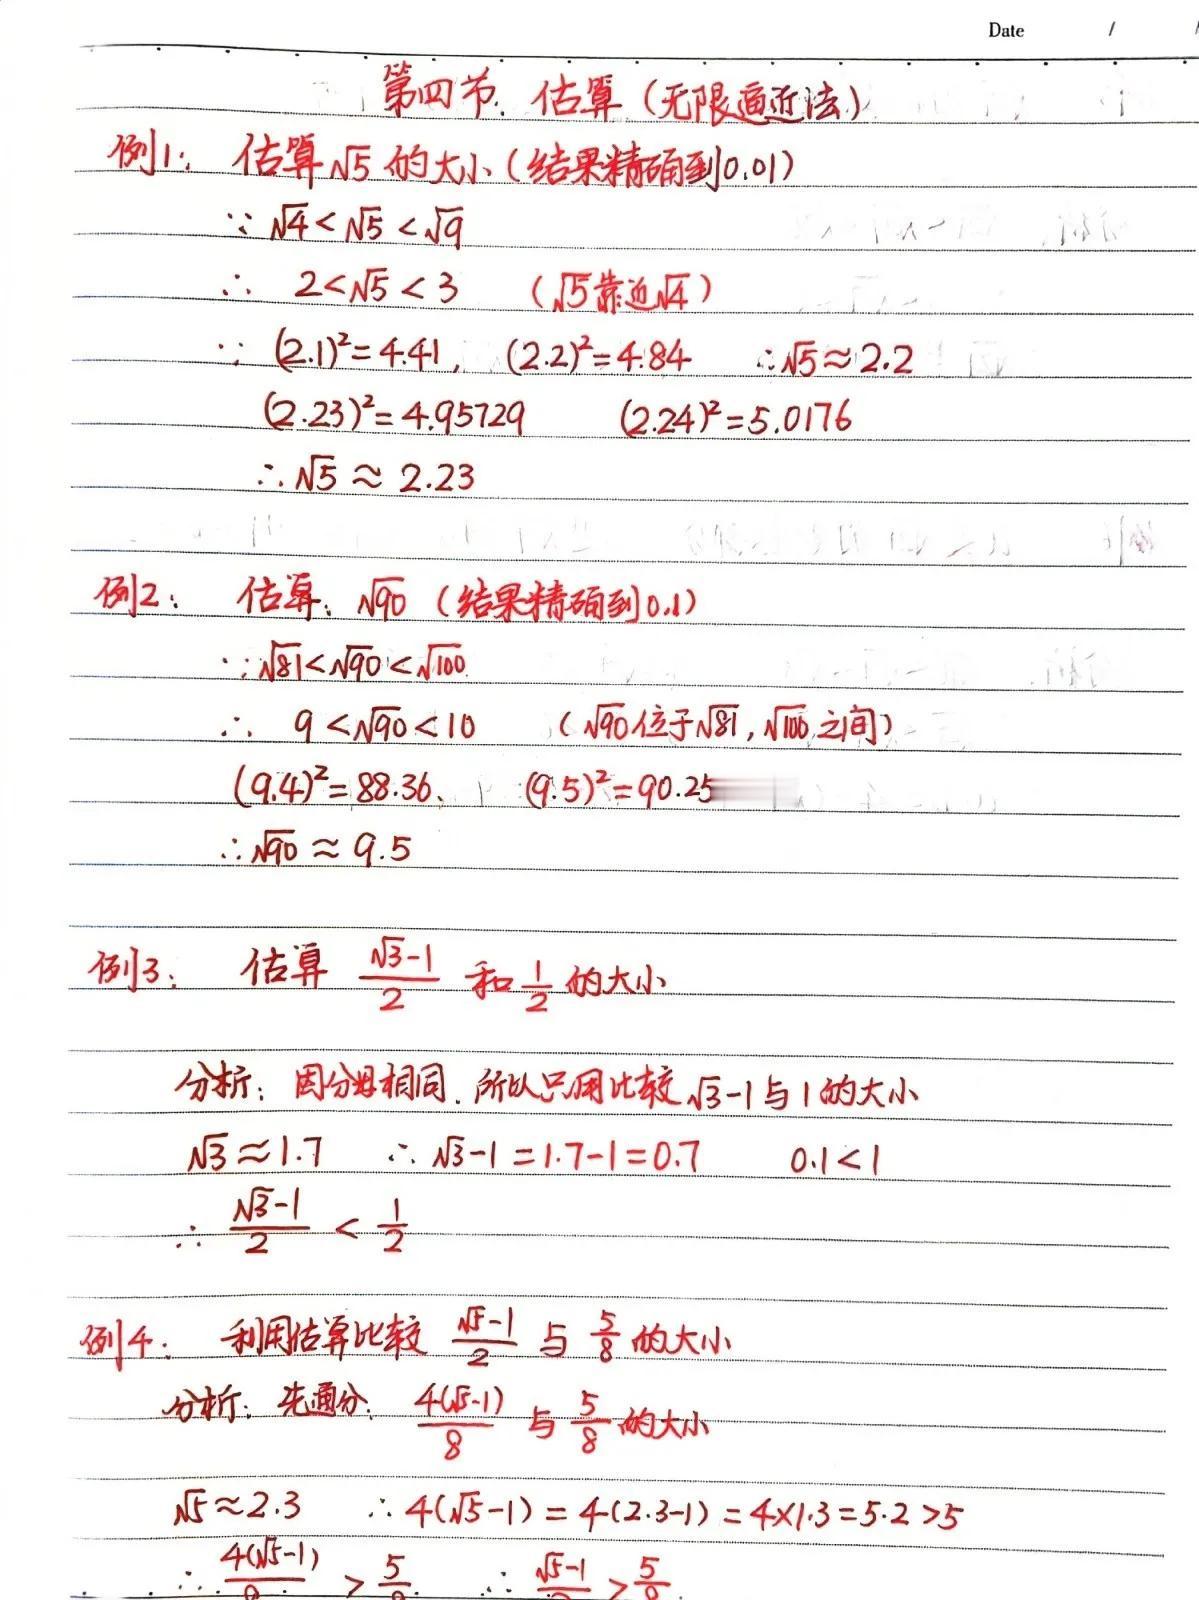 Date / /
第四节：估算（无限逼近法）
例1： 估算√5的大小（结果精确到0.01）
∵ √4<√5<√9
∴ 2<√5<3 （√5靠近√4）
∵ (2.1)²=4.41, (2.2)²=4.84 ∴√5≈2.2
(2.23)²=4.95729 (2.24)²=5.0176
∴√5≈2.23
例2： 估算：√90（结果精确到0.1）
∵√81<√90<√100
∴ 9<√90<10 （√90位于√81,√100之间）
(9.4)²=88.36、 (9.5)²=90.25
∴√90≈9.5
例3： 估算 (√3-1)/2 和 1/2 的大小
分析：因分母相同.所以只用比较√3-1与1的大小
√3≈1.7 ∴√3-1=1.7-1=0.7 0.1<1
∴ (√3-1)/2 < 1/2
例4： 利用估算比较 (√5-1)/2 与 5/8 的大小
分析：先通分： 4(√5-1)/8 与 5/8 的大小
√5≈2.3 ∴4(√5-1)=4(2.3-1)=4×1.3=5.2>5
∴ 4(√5-1)/8 > 5/8 ∴ (√5-1)/2 > 5/8